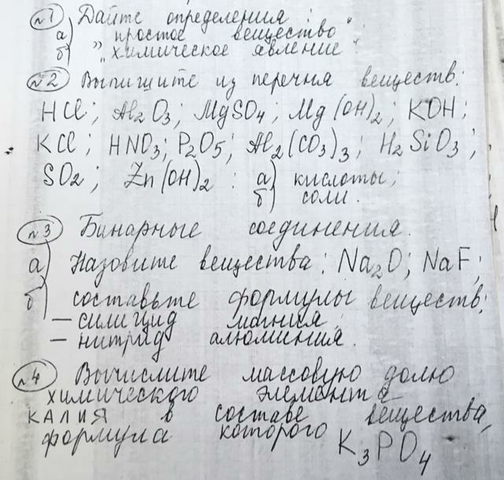 №1) Дайте определения:
а) "простое вещество"
б) "химическое явление"
№2 Выпишите из перечня веществ:
HCl; Al2O3; MgSO4; Mg(OH)2; KOH;
KCl; HNO3; P2O5; Al2(CO3)3; H2SiO3;
SO2; Zn(OH)2: а) кислоты;
б) соли.
№3 Бинарные соединения.
а) Назовите вещества: Na2O; NaF;
б) составьте формулы веществ:
– силицид магния;
– нитрид алюминия.
№4 Вычислите массовую долю
химического элемента
КАЛИЯ в составе вещества,
формула которого K3PO4